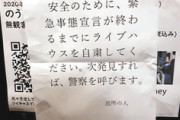 安全のために、緊
急事態宣言が終わ
るまでにライブハ
ウスを自粛してく
ださい。次発見すれ
ば、警察を呼びます。
近所の人
2020
のう
無観客